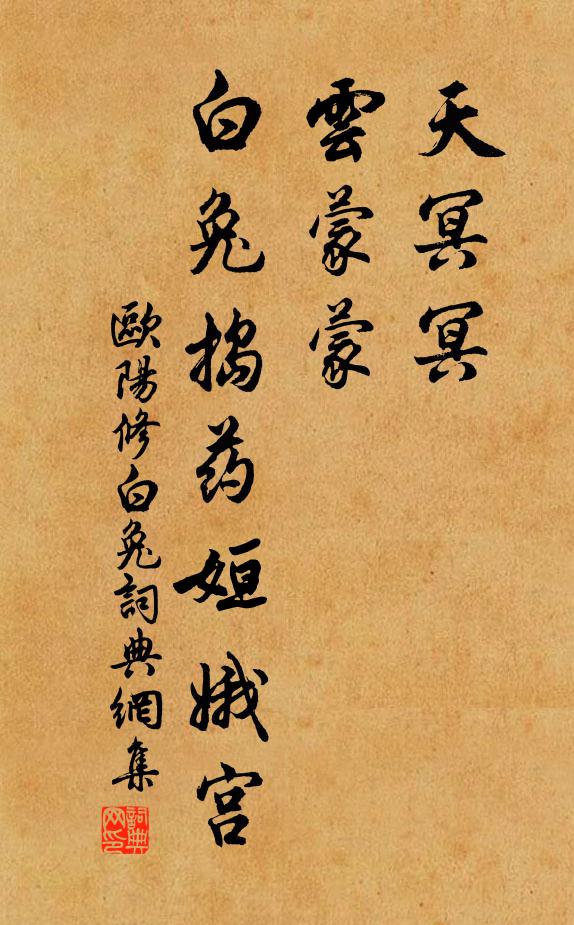 天冥冥
雲蒙蒙
白兔搗药姮娥宫
歐陽修白兔詞典網集
詞典网印